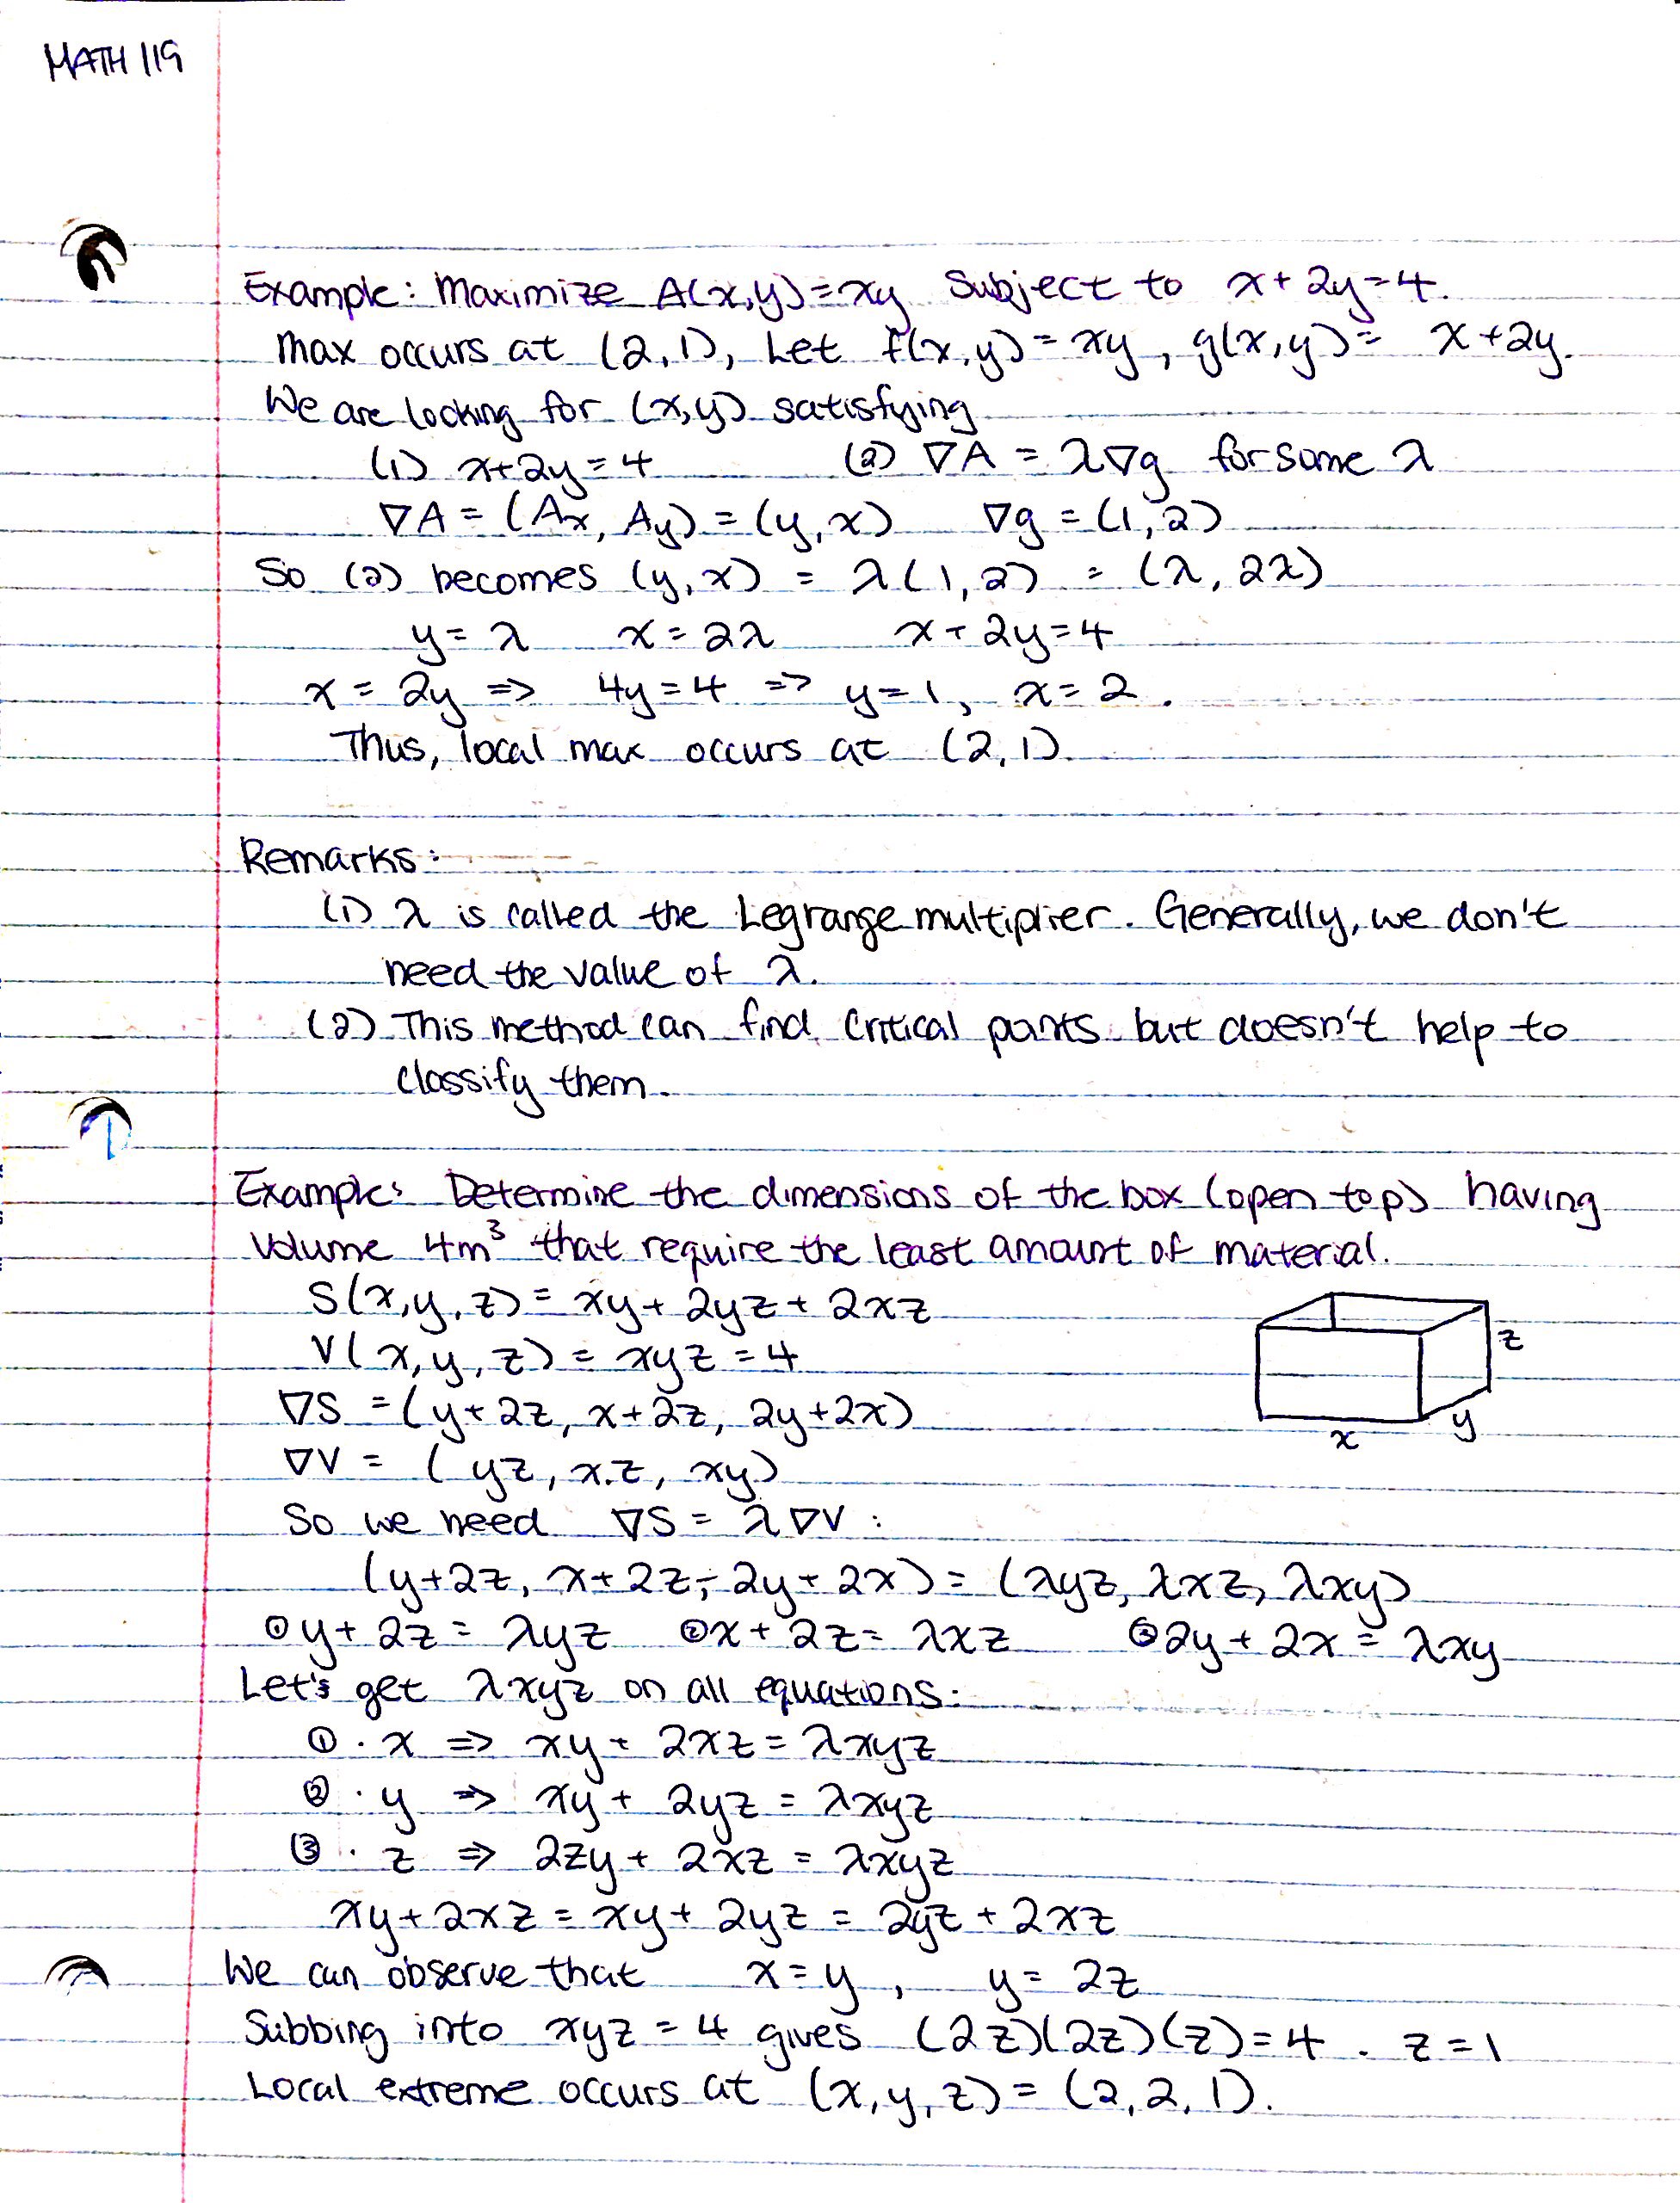 MATH 119
Example: Maximize A(x,y)=xy Subject to x+2y=4.
Max occurs at (2,1), Let f(x,y)=xy, g(x,y)= x+2y.
We are looking for (x,y) satisfying
(1) x+2y=4 (2) ∇A = λ∇g for some λ
∇A = (Ax, Ay) = (y,x) ∇g = (1,2)
So (2) becomes (y,x) = λ(1,2) = (λ, 2λ)
y=λ x=2λ x+2y=4
x = 2y => 4y=4 => y=1, x=2.
Thus, local max occurs at (2,1).
Remarks:
(1) λ is called the Legrange multiplier. Generally, we don't
need the value of λ.
(2) This method can find critical points but doesn't help to
classify them.
Example: Determine the dimensions of the box (open top) having
volume 4m³ that require the least amount of material.
S(x,y,z)= xy+2yz+2xz
V(x,y,z) = xyz = 4
z
∇S = (y+2z, x+2z, 2y+2x)
y
x
∇V = (yz, xz, xy)
So we need ∇S = λ∇V :
(y+2z, x+2z, 2y+2x) = (λyz, λxz, λxy)
① y+2z = λyz ② x+2z = λxz ③ 2y+2x = λxy
Let's get λxyz on all equations:
① · x => xy + 2xz = λxyz
② · y => xy + 2yz = λxyz
③ · z => 2zy + 2xz = λxyz
xy+2xz = xy+2yz = 2yz+2xz
We can observe that x=y, y=2z
Subbing into xyz = 4 gives (2z)(2z)(z)=4. z=1
Local extreme occurs at (x,y,z) = (2,2,1).